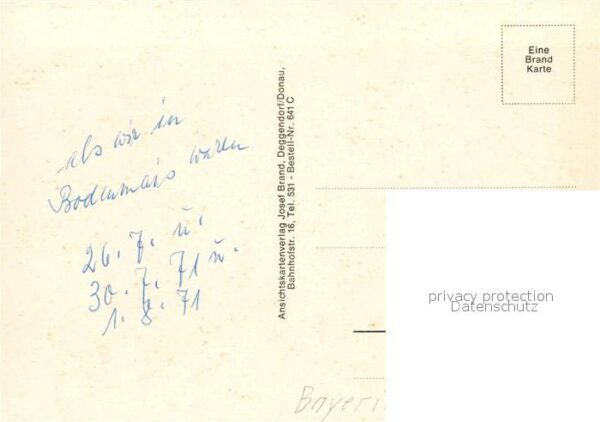 als wir in
Bodenmais waren
26. 7. u.
30. 7. 71 u.
1. 8. 71
Ansichtskartenverlag Josef Brand, Deggendorf/Donau,
Bahnhofstr. 16, Tel. 531 - Bestell-Nr. 641 C
Eine
Brand
Karte
privacy protection
Datenschutz
Bayeri